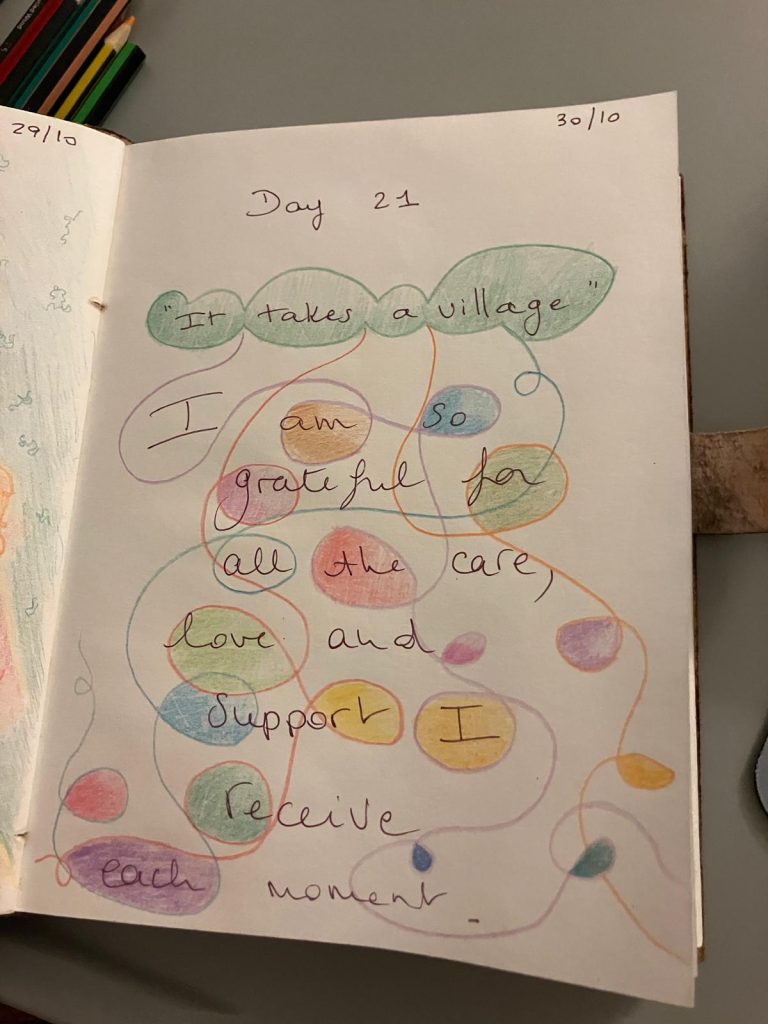 29/10
30/10
Day 21
"It takes a village"
I am so
grateful for
all the care,
love and
support I
receive
each moment.